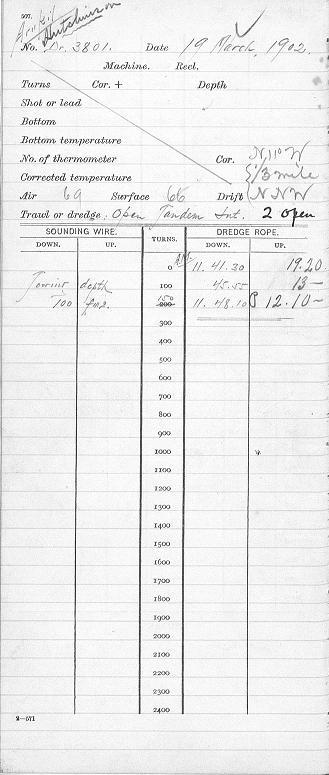 Hutchinson
No. Dr. 3801. Date 19 March, 1902.
Machine. Reel.
Turns Cor. + Depth
Shot or lead
Bottom
Bottom temperature
No. of thermometer Cor. N, 11° W
Corrected temperature 1/3 mile
Air 69 Surface 66 Drift N N W
Trawl or dredge: Open Tandem Int. 2 open
SOUNDING WIRE. TURNS. DREDGE ROPE.
DOWN. UP. DOWN. UP.
0 11. 41. 30 19.20
Towing depth 100 45.55 13—
100 fms. 150 200 11. 48. 10 P 12.10—
300
400
500
600
700
800
900
1000
1100
1200
1300
1400
1500
1600
1700
1800
1900
2000
2100
2200
2300
2400
2—571